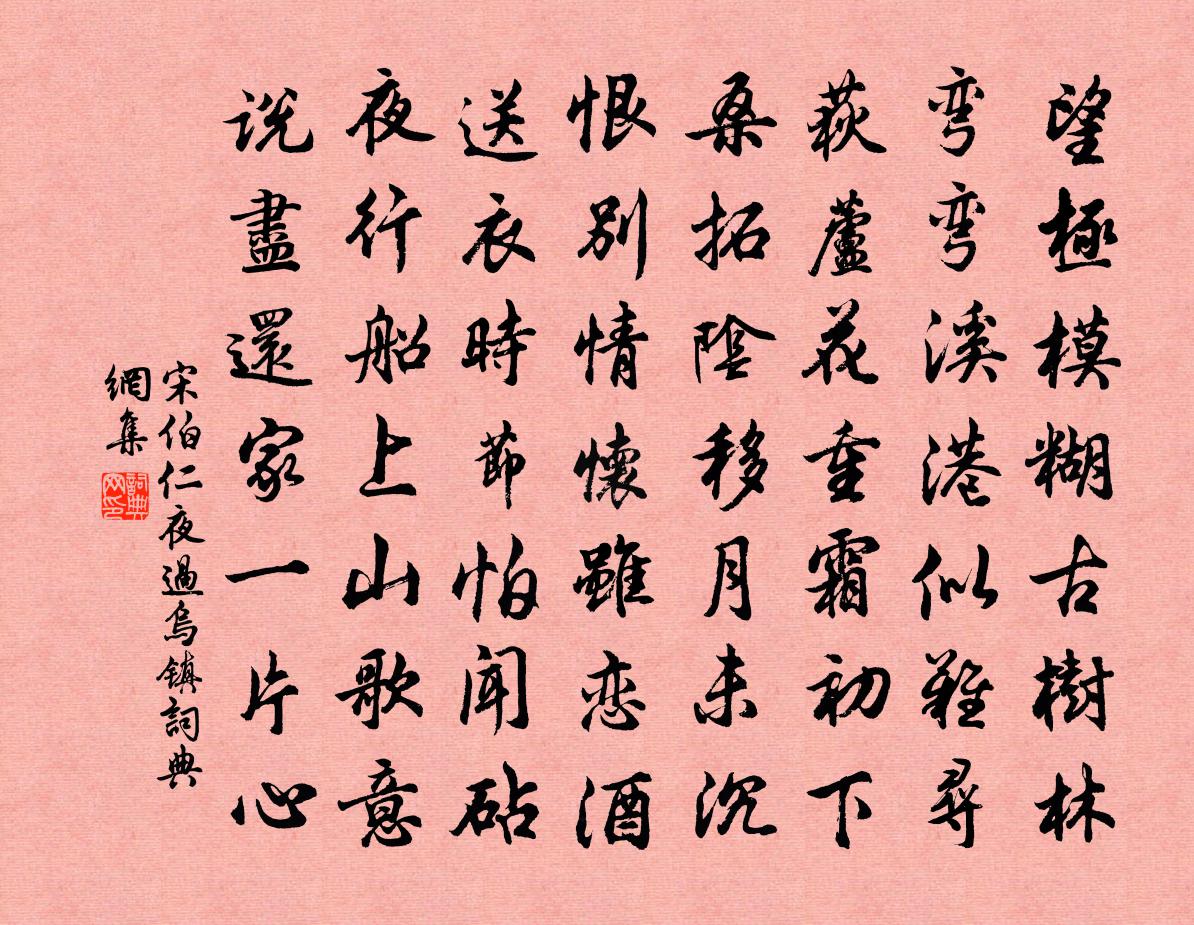 望極模糊古樹林
弯弯溪港似難尋
荻蘆花重霜初下
桑拓陰移月未沉
恨別情懷雖恋酒
送衣時節怕聞砧
夜行船上山歌意
说盡還家一片心
宋伯仁夜過烏鎮詞典
網集
詞典
网印